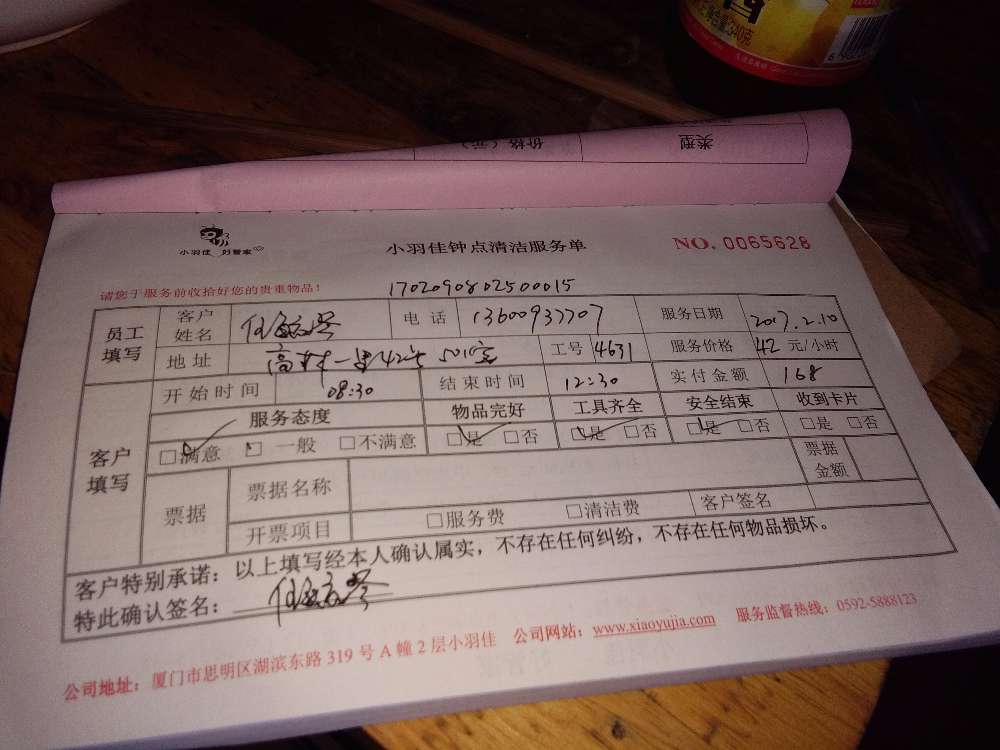 净含量:340克
类型
价格(元)
小羽佳 好管家
小羽佳钟点清洁服务单
NO. 0065628
请您于服务前收拾好您的贵重物品!
1702090802500015
员工填写
客户姓名
电话
13600937707
服务日期
2017.2.10
地址
高林一里42号 501室
工号 4631
服务价格
42 元/小时
客户填写
开始时间
08:30
结束时间
12:30
实付金额
168
服务态度
物品完好
工具齐全
安全结束
收到卡片
□满意 □一般 □不满意
□是 □否
□是 □否
□是 □否
□是 □否
票据
票据名称
票据金额
开票项目
□服务费
□清洁费
客户签名
客户特别承诺:以上填写经本人确认属实,不存在任何纠纷,不存在任何物品损坏。
特此确认签名:
公司地址:厦门市思明区湖滨东路 319 号 A 幢 2 层小羽佳 公司网站:www.xiaoyujia.com 服务监督热线:0592-5888123